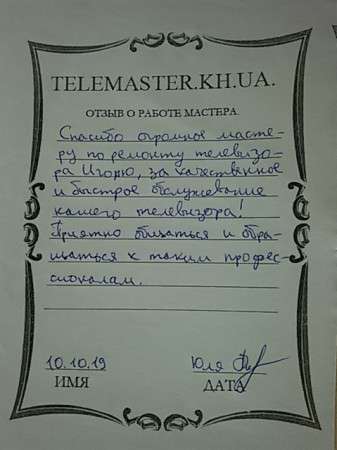 TELEMASTER.KH.UA.
ОТЗЫВ О РАБОТЕ МАСТЕРА
Спасибо огромное масте-
ру по ремонту телевизо-
ра Игорю, за качественное
и быстрое обслуживание
нашего телевизора!
Приятно общаться и обра-
щаться к таким профес-
сионалам.
10.10.19 Юля
ИМЯ ДАТА